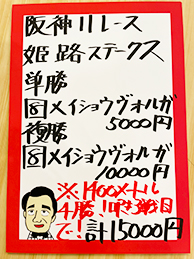 阪神11レース
姫路ステークス
単勝
⑧メイショウヴォルガ
5000円
複勝
⑧メイショウヴォルガ
10000円
※1400メートル
4勝!
で!
計15000円